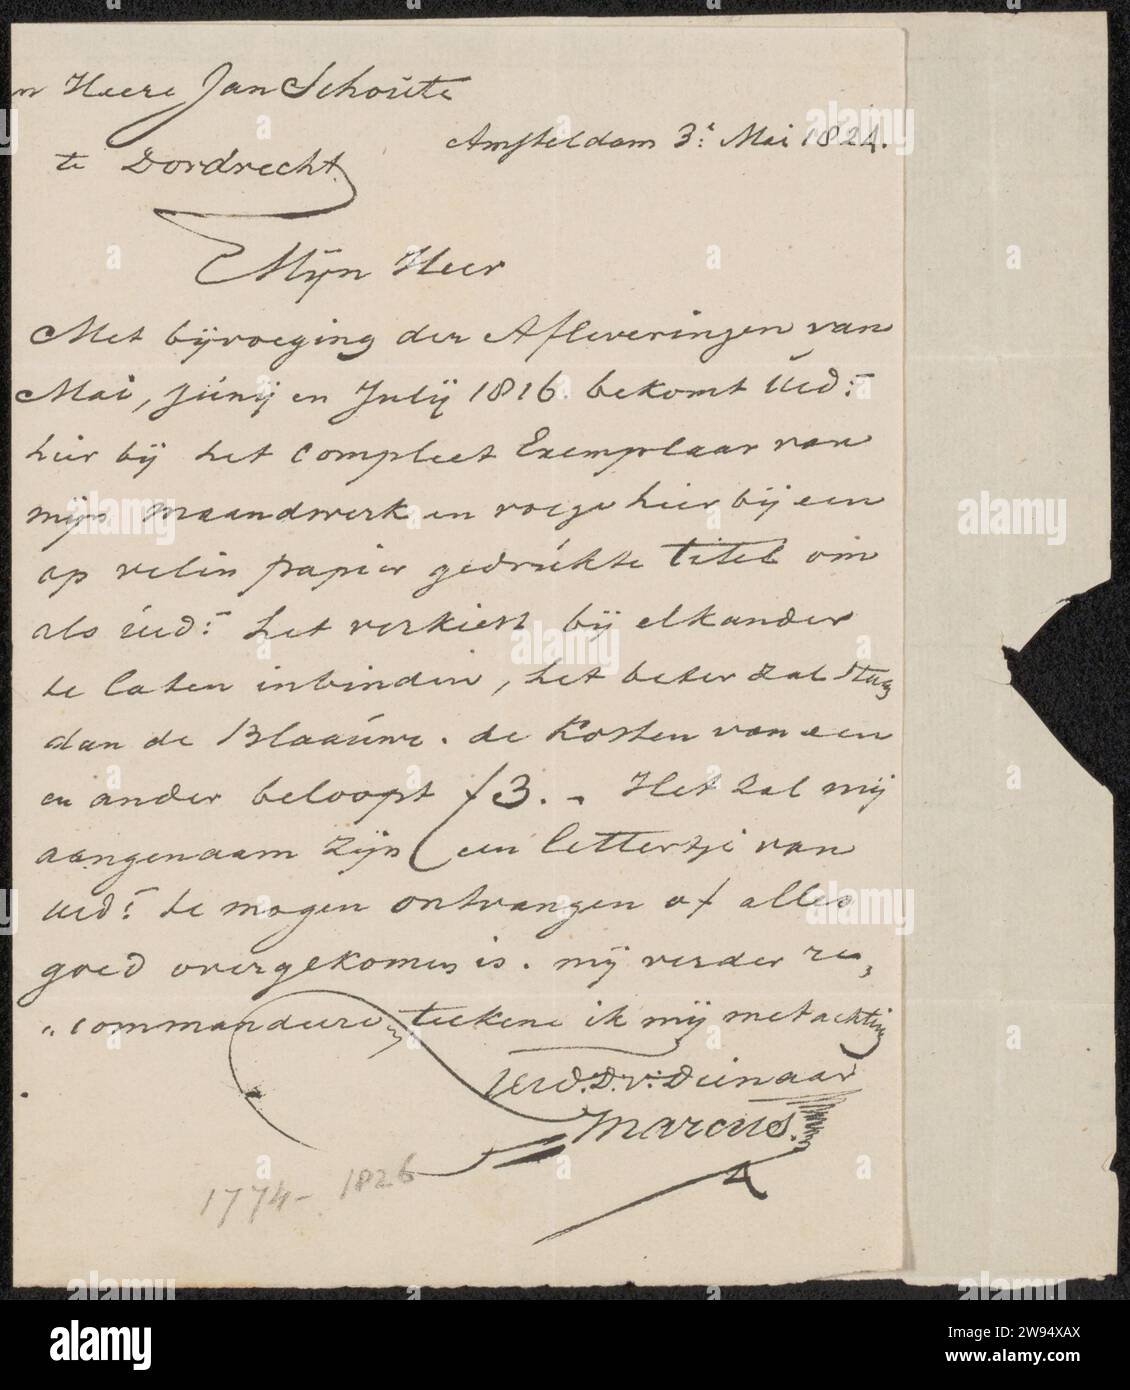 n Heere Jan Schoute
Amsteldam 3: Mai 1824.
te Dordrecht
Mijn Heer
Met bijvoeging der Afleveringen van
Mai, Junij en Julij 1816. bekomt Ued:
hier bij het compleet Exemplaar van
mijn maandwerk en voege hier bij een
op velin papier gedrukte titel om
als Ued: het verkiest bij elkander
te laten inbinden, het beter zal staan
dan de Blaauwe. de Kosten van een
en ander beloopt f3.- Het zal mij
aangenaam zijn een lettertje van
Ued: te mogen ontvangen of alles
goed overgekomen is. mij verder re=
"commandeerend teekene ik mij met achting
Ued. D.v: Deinaar
Marcus.
1774-1826
alamy
Image ID: 2W94XAX
www.alamy.com